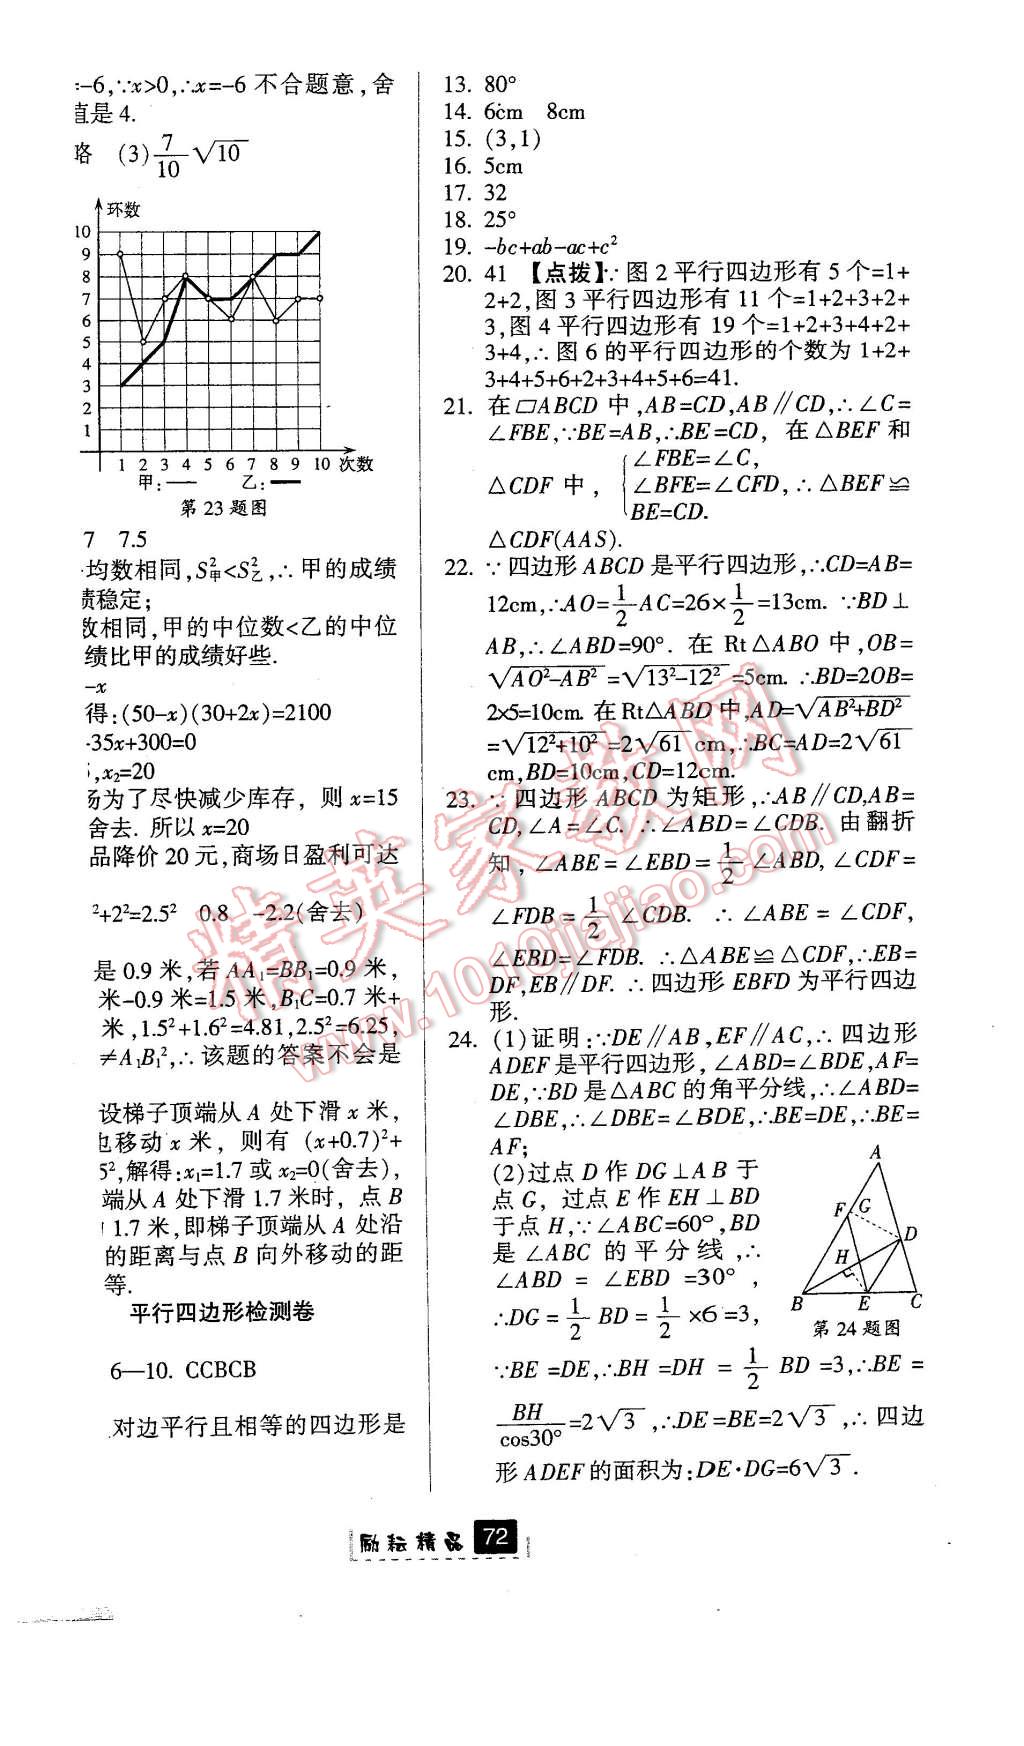 =-6,∵x>0,∴x=-6 不合题意,舍
值是 4.
略 (3) 7/10 √10
环数
10
9
8
7
6
5
4
3
2
1
1 2 3 4 5 6 7 8 9 10 次数
甲:— 乙:—
第 23 题图
7 7.5
均数相同,S²甲<S²乙,∴甲的成绩
稳定;
数相同,甲的中位数<乙的中位
绩比甲的成绩好些.
-x
得:(50-x)(30+2x)=2100
-35x+300=0
,x₂=20
场为了尽快减少库存, 则 x=15
舍去. 所以 x=20
品降价 20 元,商场日盈利可达
²+2²=2.5² 0.8 -2.2(舍去)
是 0.9 米,若 AA₁=BB₁=0.9 米,
米-0.9 米=1.5 米,B₁C=0.7 米+
米,1.5²+1.6²=4.81,2.5²=6.25,
≠A₁B₁²,∴该题的答案不会是
设梯子顶端从 A 处下滑 x 米,
也移动 x 米, 则有 (x+0.7)²+
5²,解得:x₁=1.7 或 x₂=0(舍去),
端从 A 处下滑 1.7 米时, 点 B
1.7 米,即梯子顶端从 A 处沿
的距离与点 B 向外移动的距
等.
平行四边形检测卷
6—10. CCBCB
对边平行且相等的四边形是
13. 80°
14. 6cm 8cm
15. (3,1)
16. 5cm
17. 32
18. 25°
19. -bc+ab-ac+c²
20. 41 【点拨】∵图 2 平行四边形有 5 个=1+
2+2,图 3 平行四边形有 11 个=1+2+3+2+
3,图 4 平行四边形有 19 个=1+2+3+4+2+
3+4,∴图 6 的平行四边形的个数为 1+2+
3+4+5+6+2+3+4+5+6=41.
21. 在▱ABCD 中,AB=CD,AB∥CD,∴∠C=
∠FBE,∵BE=AB,∴BE=CD, 在△BEF 和
△CDF 中, { ∠FBE=∠C,
∠BFE=∠CFD, ∴△BEF≌
BE=CD.
△CDF(AAS).
22. ∵四边形 ABCD 是平行四边形,∴CD=AB=
12cm,∴AO=1/2 AC=26×1/2=13cm. ∵BD⊥
AB,∴∠ABD=90°. 在 Rt△ABO 中,OB=
√(AO²-AB²)=√(13²-12²)=5cm. ∴BD=2OB=
2×5=10cm. 在Rt△ABD中,AD=√(AB²+BD²)
=√(12²+10²)=2√61 cm,∴BC=AD=2√61
cm,BD=10cm,CD=12cm.
23. ∵四边形 ABCD 为矩形,∴AB∥CD,AB=
CD,∠A=∠C. ∴∠ABD=∠CDB. 由翻折
知,∠ABE=∠EBD=1/2 ∠ABD,∠CDF=
∠FDB=1/2 ∠CDB. ∴∠ABE=∠CDF,
∠EBD=∠FDB. ∴△ABE≌△CDF,∴EB=
DF,EB∥DF. ∴四边形 EBFD 为平行四边
形.
24. (1)证明:∵DE∥AB,EF∥AC,∴四边形
ADEF是平行四边形,∠ABD=∠BDE,AF=
DE,∵BD 是△ABC 的角平分线,∴∠ABD=
∠DBE,∴∠DBE=∠BDE,∴BE=DE,∴BE=
AF;
(2)过点 D 作 DG⊥AB 于
点 G, 过点 E 作 EH⊥BD
于点 H,∵∠ABC=60°,BD
是 ∠ABC 的 平 分 线,∴
∠ABD = ∠EBD =30°,
∴DG=1/2 BD=1/2 ×6=3,
A
F G
D
H
B E C
第 24 题图
∵BE=DE,∴BH=DH=1/2 BD=3,∴BE=
BH/cos30°=2√3,∴DE=BE=2√3,∴四边
形 ADEF 的面积为:DE·DG=6√3.
精英家教网
www.1010jiajiao.com
励耘精品 72